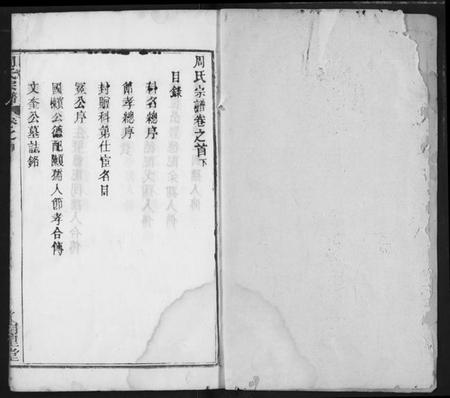 周氏宗譜卷之首下
目錄
科名總序
節孝總序
封贈科第仕宦名目
冢公序
國懶公德配顏孺人節孝合傳
文奎公墓誌銘